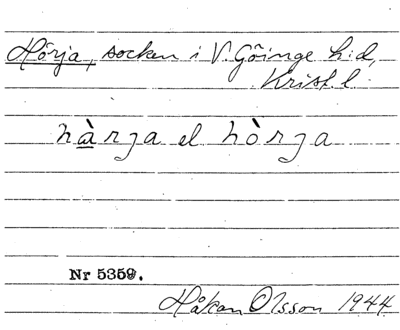 Hörja, socken i V. Göinge h:d,
Krist. l.
hàrja el hòrja
Nr 5359.
Håkan Olsson 1944